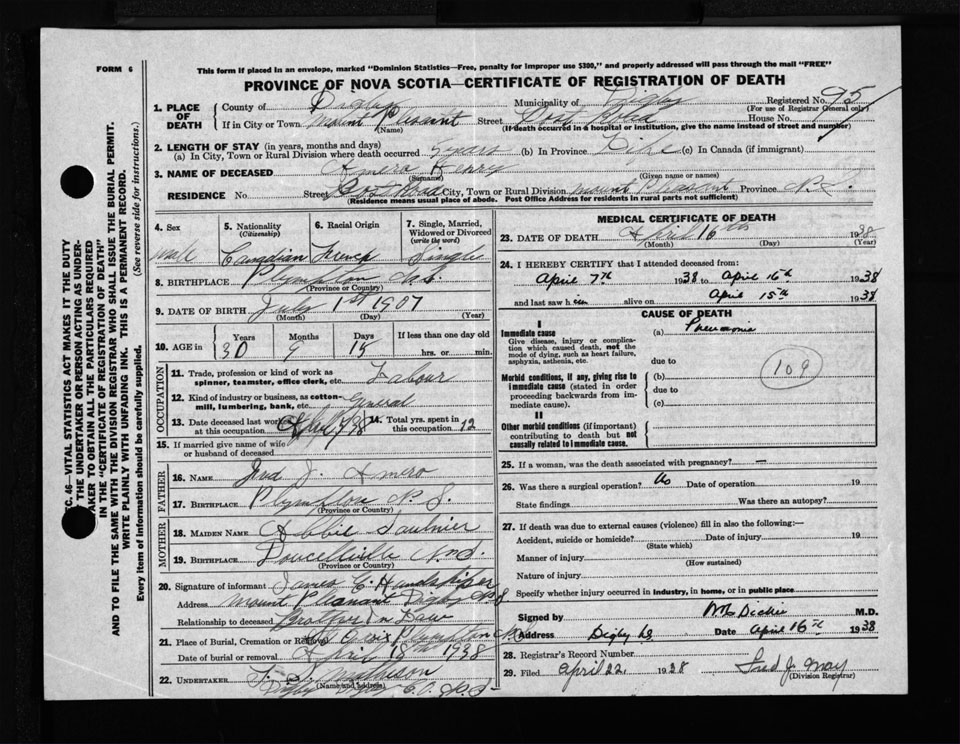 FORM 6
This form if placed in an envelope, marked "Dominion Statistics—Free, penalty for improper use $300," and properly addressed will pass through the mail "FREE"
PROVINCE OF NOVA SCOTIA—CERTIFICATE OF REGISTRATION OF DEATH
1. PLACE OF DEATH
County of Digby Municipality of Digby Registered No. 95
(For use of Registrar General only)
If in City or Town Mount Pleasant Street Post Road House No.
(Name) (If death occurred in a hospital or institution, give the name instead of street and number)
2. LENGTH OF STAY (in years, months and days)
(a) In City, Town or Rural Division where death occurred 5 years (b) In Province Life (c) In Canada (if immigrant)
3. NAME OF DECEASED Amero Henry
(Surname) (Given name or names)
RESIDENCE No. Street Post Road City, Town or Rural Division Mount Pleasant Province N.S.
(Residence means usual place of abode. Post Office Address for residents in rural parts not sufficient)
4. Sex
Male
5. Nationality
(Citizenship)
Canadian
6. Racial Origin
French
7. Single, Married, Widowed or Divorced
(write the word)
Single
8. BIRTHPLACE Plympton N.S.
(Province or Country)
9. DATE OF BIRTH July 1st 1907
(Month) (Day) (Year)
10. AGE in Years Months Days If less than one day old
30 9 15 hrs. or min.
OCCUPATION
11. Trade, profession or kind of work as spinner, teamster, office clerk, etc. Labour
12. Kind of industry or business, as cotton-mill, lumbering, bank, etc. General
13. Date deceased last worked at this occupation April 7, 38
14. Total yrs. spent in this occupation 12
15. If married give name of wife or husband of deceased
FATHER
16. NAME J. Amero
17. BIRTHPLACE Plympton N.S.
(Province or Country)
MOTHER
18. MAIDEN NAME Abbie Saulnier
19. BIRTHPLACE Doucetteville N.S.
(Province or Country)
20. Signature of informant James C. Handspiker
Address Mount Pleasant Digby N.S.
Relationship to deceased Brother in Law
21. Place of Burial, Cremation or Removal St. Croix Plympton N.S.
Date of burial or removal April 18th 1938
22. UNDERTAKER
(Name and address) Digby N.S.
MEDICAL CERTIFICATE OF DEATH
23. DATE OF DEATH April 16th 1938
(Month) (Day)
24. I HEREBY CERTIFY that I attended deceased from:
April 7th 1938 to April 16th 1938
and last saw him alive on April 15th 1938
CAUSE OF DEATH
I
Immediate cause (a) Pneumonia
Give disease, injury or complication which caused death, not the mode of dying, such as heart failure, asphyxia, asthenia, etc.
due to
109
Morbid conditions, if any, giving rise to immediate cause (stated in order proceeding backwards from immediate cause).
(b)
due to
(c)
II
Other morbid conditions (if important) contributing to death but not causally related to immediate cause.
25. If a woman, was the death associated with pregnancy? —
26. Was there a surgical operation? No Date of operation 19
State findings Was there an autopsy?
27. If death was due to external causes (violence) fill in also the following:—
Accident, suicide or homicide? Date of injury 19
(State which)
Manner of injury
(How sustained)
Nature of injury
Specify whether injury occurred in industry, in home, or in public place
Signed by Dickie M.D.
Address Digby NS Date April 16th 1938
28. Registrar's Record Number
29. Filed April 22 1938 Fred J. May
(Division Registrar)
SEC. 46—VITAL STATISTICS ACT MAKES IT THE DUTY
OF THE UNDERTAKER OR PERSON ACTING AS UNDER-
TAKER TO OBTAIN ALL THE PARTICULARS REQUIRED
IN THE "CERTIFICATE OF REGISTRATION OF DEATH"
AND TO FILE THE SAME WITH THE DIVISION REGISTRAR WHO SHALL ISSUE THE BURIAL PERMIT.
WRITE PLAINLY WITH UNFADING INK. THIS IS A PERMANENT RECORD.
Every item of information should be carefully supplied. (See reverse side for instructions.)